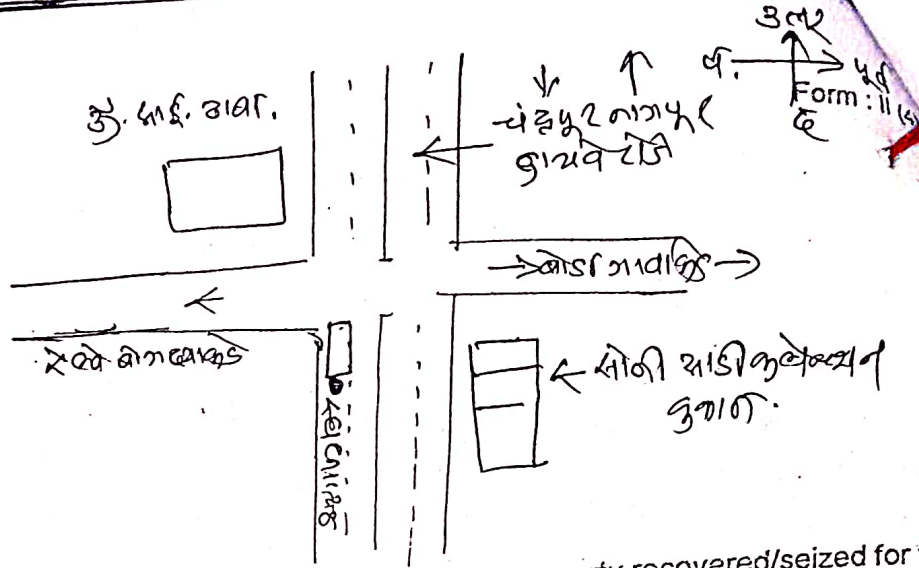 उत्तर
प.
पूर्व
द
Form : II
जु. आई. ढाबा.
चंद्रपूर नागपूर
हायवे रोड
बोर्डा गावाकडे
रेल्वे बोगद्याकडे
घटनास्थळ
सोनी साडी कलेक्शन
दुकान.
recovered/seized for